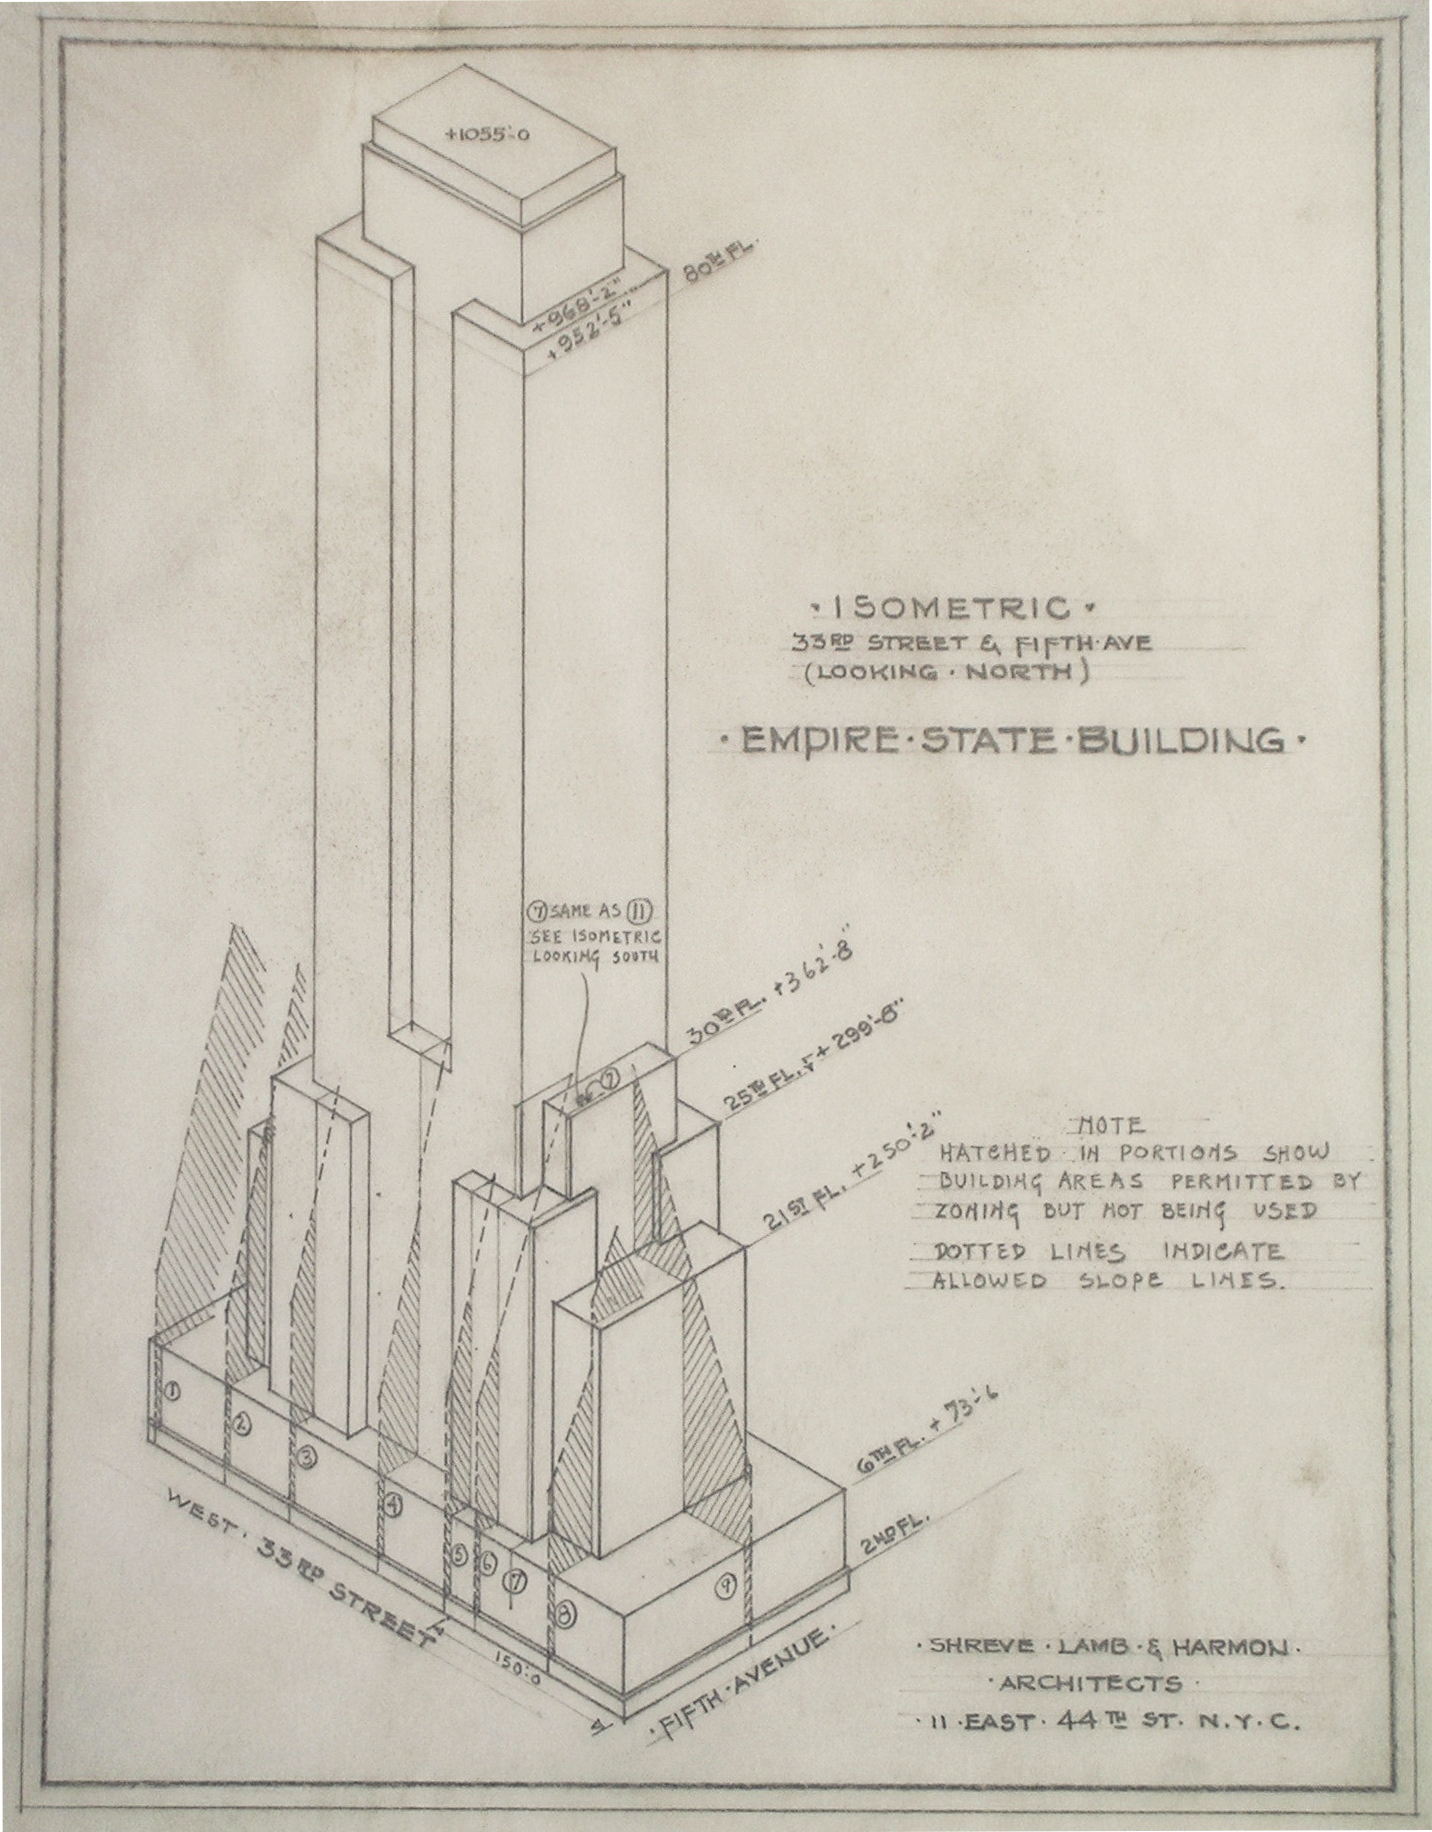 +1055'-0
80TH FL.
+968'-2"
+952'-5"
· ISOMETRIC ·
33RD STREET & FIFTH·AVE
(LOOKING · NORTH)
· EMPIRE · STATE · BUILDING ·
⑦ SAME AS ⑪
SEE ISOMETRIC
LOOKING SOUTH
⑦
30TH FL. +362'-8"
25TH FL. + 299'-8"
21ST FL. +250'-2"
NOTE
HATCHED IN PORTIONS SHOW
BUILDING AREAS PERMITTED BY
ZONING BUT NOT BEING USED
DOTTED LINES INDICATE
ALLOWED SLOPE LINES.
6TH FL. + 73'-6
2ND FL.
① ② ③ ④ ⑤ ⑥ ⑦ ⑧ ⑨
WEST · 33RD STREET
150'-0
· FIFTH · AVENUE ·
· SHREVE · LAMB · & HARMON ·
· ARCHITECTS ·
· 11 · EAST · 44TH ST. N.Y.C.